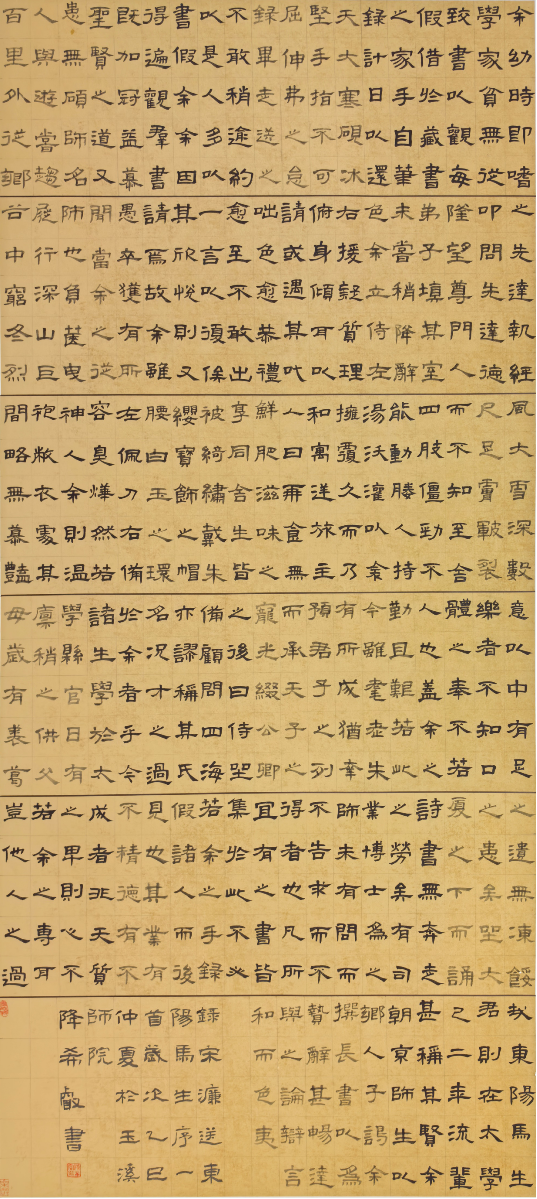 余幼時即嗜
學家貧無從
致書以觀每
假借於藏書
之家手自筆
錄計日以還
天大寒硯冰
堅手指不可
屈伸弗之怠
錄畢走送之
不敢稍逾約
以是人多以
書假余余因
得遍觀羣書
既加冠益慕
聖賢之道又
患無碩師名
人與遊嘗趨
百里外從鄉
之先達執經
叩問先達德
隆望尊門人
弟子填其室
未嘗稍降辭
色余立侍左
右援疑質理
俯身傾耳以
請或遇其叱
咄色愈恭禮
愈至不敢出
一言以復俟
其欣悅則又
請焉故余雖
愚卒獲有所
聞當余之從
師也負篋曳
屣行深山巨
谷中窮冬烈
風大雪深數
尺足膚皸裂
而不知至舍
四肢僵勁不
能動媵人持
湯沃灌以衾
擁覆久而乃
和寓逆旅主
人曰再食無
鮮肥滋味之
享同舍生皆
被綺繡戴朱
纓寶飾之帽
腰白玉之環
左佩刀右備
容臭燁然若
神人余則温
袍敝衣處其
間略無慕豔
意以中有足
樂者不知口
體之奉不若
人也蓋余之
勤且艱若此
今雖耄老未
有所成猶幸
預君子之列
而承天子之
寵光綴公卿
之後日侍坐
備顧問四海
亦謬稱其氏
名況才之過
於余者乎今
諸生學於太
學縣官日有
廩稍之供父
母歲有裘葛
之遺無凍餒
之患矣坐大
廈之下而誦
詩書無奔走
之勞矣有司
業博士為之
師未有問而
不告求而不
得者也凡所
宜有之書皆
集於此不必
若余之手錄
假諸人而後
見也其業有
不精德有不
成者非天質
之卑則心不
若余之專耳
豈他人之過
哉東陽馬生
君則在太學
已二年流輩
甚稱其賢余
朝京師生以
鄉人子謁余
撰長書以為
贄辭甚暢達
與之論辯言
和而色夷
錄宋濂送東
陽馬生序一
首歲次乙巳
仲夏於玉溪
師院
降希叡書